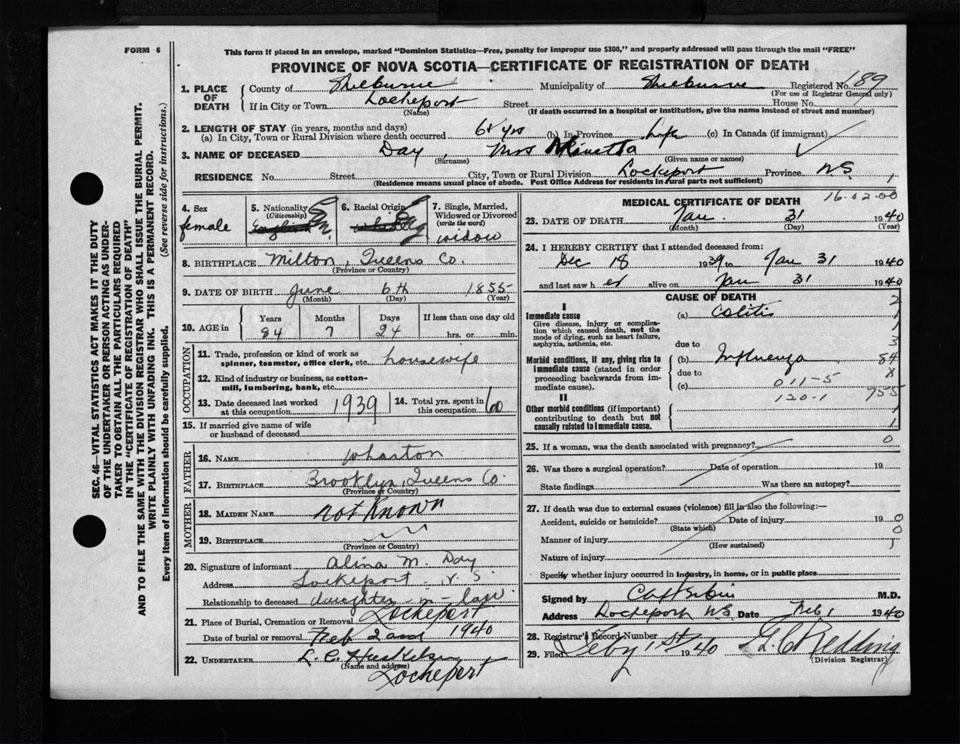 FORM 6
This form if placed in an envelope, marked "Dominion Statistics—Free, penalty for improper use $300," and properly addressed will pass through the mail "FREE"
PROVINCE OF NOVA SCOTIA—CERTIFICATE OF REGISTRATION OF DEATH
SEC. 46—VITAL STATISTICS ACT MAKES IT THE DUTY
OF THE UNDERTAKER OR PERSON ACTING AS UNDER-
TAKER TO OBTAIN ALL THE PARTICULARS REQUIRED
IN THE "CERTIFICATE OF REGISTRATION OF DEATH"
AND TO FILE THE SAME WITH THE DIVISION REGISTRAR WHO SHALL ISSUE THE BURIAL PERMIT.
WRITE PLAINLY WITH UNFADING INK. THIS IS A PERMANENT RECORD.
Every item of information should be carefully supplied. (See reverse side for instructions.)
1. PLACE OF DEATH
County of Shelburne Municipality of Shelburne Registered No. 189
(For use of Registrar General only)
If in City or Town Lockeport Street House No.
(Name) (If death occurred in a hospital or institution, give the name instead of street and number)
2. LENGTH OF STAY (in years, months and days)
(a) In City, Town or Rural Division where death occurred yrs (b) In Province Life (c) In Canada (if immigrant)
3. NAME OF DECEASED Day, Mrs
(Surname) (Given name or names)
RESIDENCE No. Street City, Town or Rural Division Lockeport Province N.S.
(Residence means usual place of abode. Post Office Address for residents in rural parts not sufficient)
4. Sex
female
5. Nationality
(Citizenship)
English
6. Racial Origin
7. Single, Married,
Widowed or Divorced
(write the word)
widow
8. BIRTHPLACE Milton, Queens Co.
(Province or Country)
9. DATE OF BIRTH June 6th 1855
(Month) (Day) (Year)
10. AGE in
Years Months Days If less than one day old
84 7 24 hrs. or min.
OCCUPATION
11. Trade, profession or kind of work as
spinner, teamster, office clerk, etc. housewife
12. Kind of industry or business, as cotton-
mill, lumbering, bank, etc.
13. Date deceased last worked
at this occupation 1939
14. Total yrs. spent in
this occupation 60
15. If married give name of wife
or husband of deceased
FATHER
16. NAME Wharton
17. BIRTHPLACE Brooklyn, Queens Co.
(Province or Country)
MOTHER
18. MAIDEN NAME not Known
19. BIRTHPLACE
(Province or Country)
20. Signature of informant Alina M. Day
Address Lockeport N.S.
Relationship to deceased daughter-in-law
21. Place of Burial, Cremation or Removal Lockeport
Date of burial or removal Feb 2nd 1940
22. UNDERTAKER L. C.
(Name and address)
Lockeport
MEDICAL CERTIFICATE OF DEATH
16.02.00
23. DATE OF DEATH Jan. 31 1940
(Month) (Day) (Year)
24. I HEREBY CERTIFY that I attended deceased from:
Dec 18 1939 to Jan 31 1940
and last saw her alive on Jan 31 1940
CAUSE OF DEATH
I
Immediate cause
Give disease, injury or complica-
tion which caused death, not the
mode of dying, such as heart failure,
asphyxia, asthenia, etc.
(a) Colitis
due to
Morbid conditions, if any, giving rise to
immediate cause (stated in order
proceeding backwards from im-
mediate cause).
(b) Influenza 84
due to
(c) 011-5
120-1 755
II
Other morbid conditions (if important)
contributing to death but not
causally related to immediate cause.
25. If a woman, was the death associated with pregnancy? 0
26. Was there a surgical operation? Date of operation 19
State findings Was there an autopsy?
27. If death was due to external causes (violence) fill in also the following:—
Accident, suicide or homicide? Date of injury 19
(State which)
Manner of injury
(How sustained)
Nature of injury
Specify whether injury occurred in industry, in home, or in public place
Signed by M.D.
Address Lockeport N.S. Date Feb 1 1940
28. Registrar's Record Number
29. Filed Feby 1st 1940 Redding
(Division Registrar)